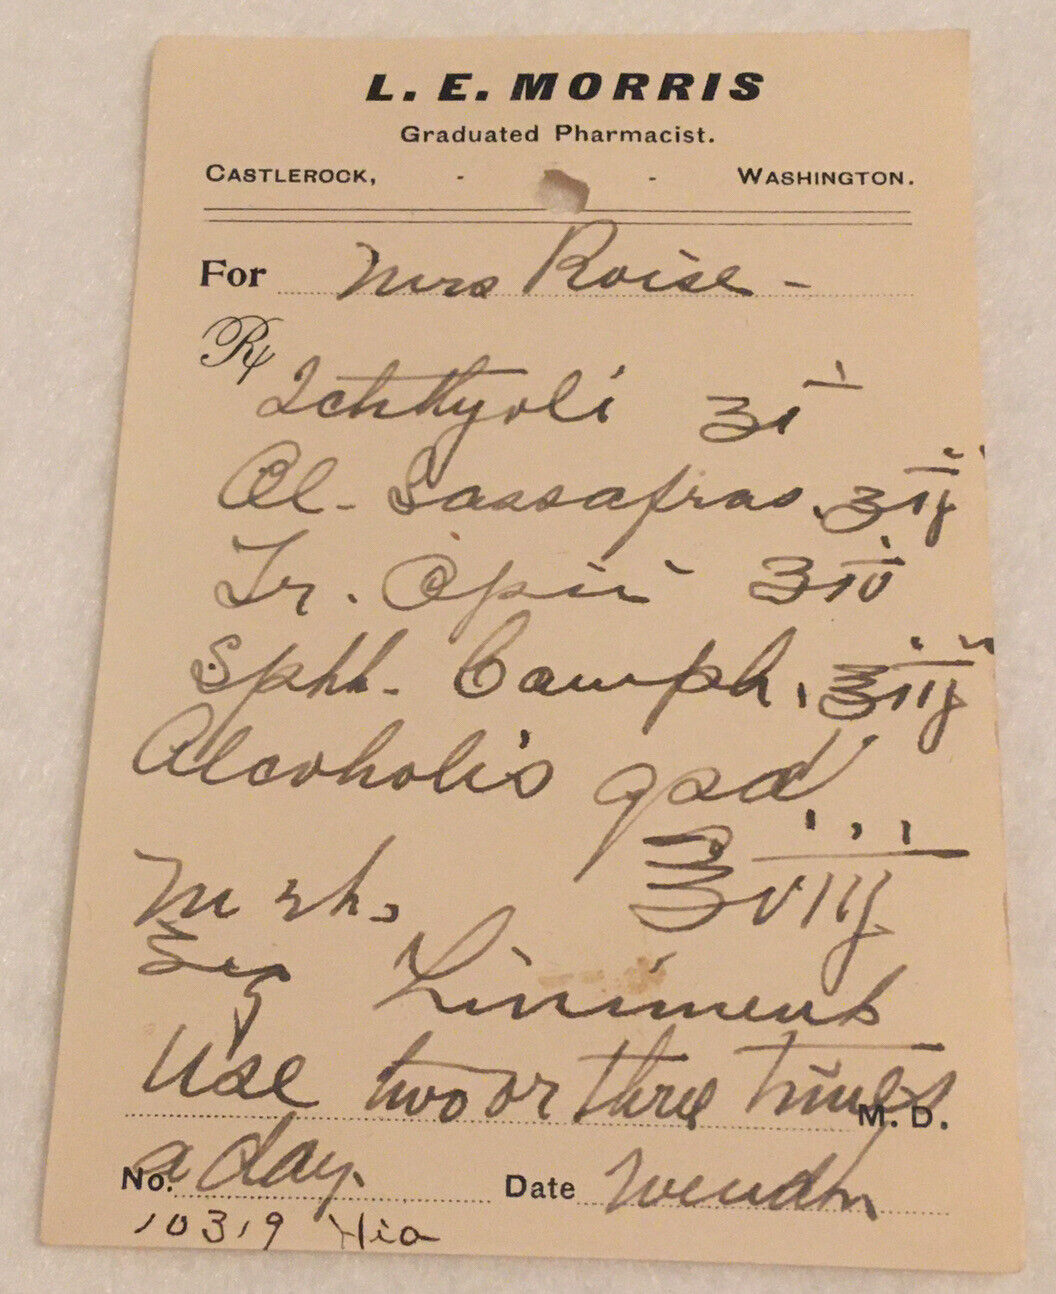 L. E. MORRIS
Graduated Pharmacist.
CASTLEROCK, - - WASHINGTON.
For Mrs Roise -
Rx
Ichthyoli ʒi
Ol. Sassafras. ʒij
Tr. Opii ʒiv
Camph. ʒiij
Alcoholis qsd
M ʒviij
Sig Liniment
Use two or three times
M. D.
a day.
No. Date
10319